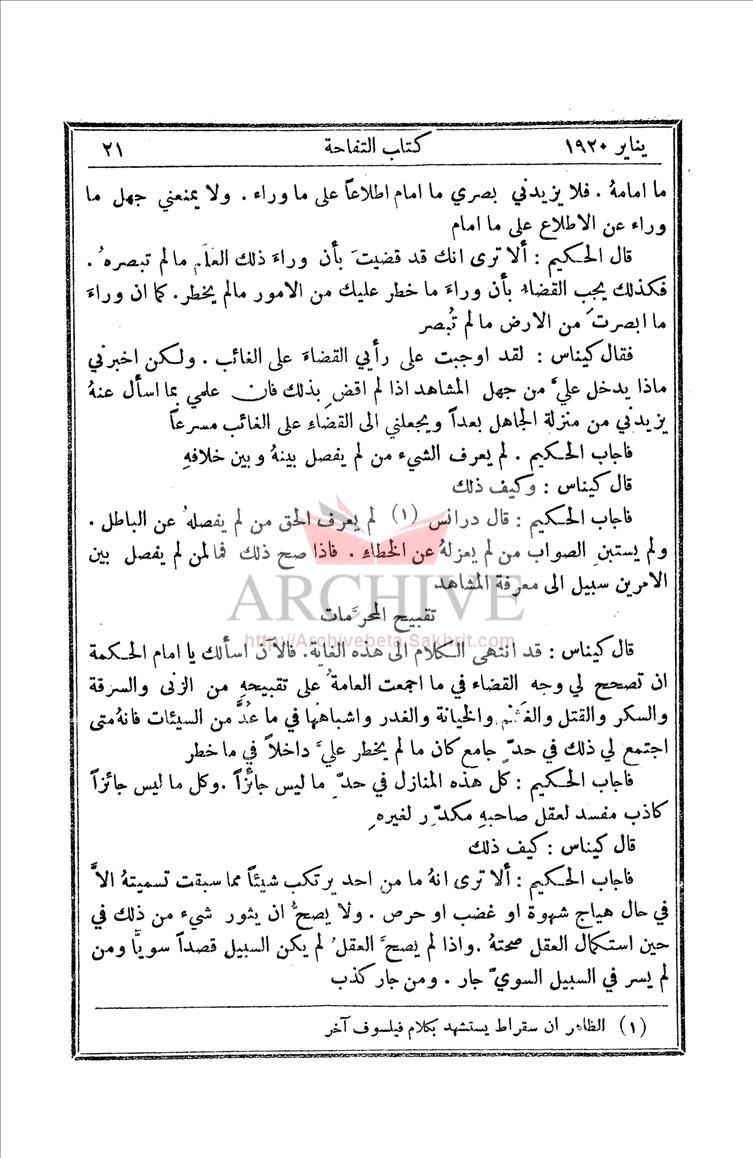 يناير ١٩٢٠ كتاب التفاحة ٢١
ما امامهُ . فلا يزيدني بصري ما امام اطلاعاً على ما وراء . ولا يمنعني جهل ما
وراء عن الاطلاع على ما امام
قال الحكيم : ألا ترى انك قد قضيتَ بأن وراءَ ذلك العلَم ما لم تبصرهُ .
فكذلك يجب القضاءُ بأن وراءَ ما خطر عليك من الامور مالم يخطر. كما ان وراءَ
ما ابصرتَ من الارض ما لم تُبصر
فقال كيناس : لقد اوجبت على رأيي القضاءَ على الغائب . ولكن اخبرني
ماذا يدخل عليَّ من جهل المشاهد اذا لم اقضِ بذلك فان علمي بما اسأل عنهُ
يزيدني من منزلة الجاهل بعداً ويجعلني الى القضاءِ على الغائب مسرعاً
فاجاب الحكيم . لم يعرف الشيء من لم يفصل بينهُ وبين خلافهِ
قال كيناس : وكيف ذلك
فاجاب الحكيم : قال درانس (١) لم يعرف الحق من لم يفصلهُ عن الباطل .
ولم يستبن الصواب من لم يعزلهُ عن الخطاءِ . فاذا صح ذلك فما لمن لم يفصل بين
الامرين سبيل الى معرفة المشاهد
تقبيح المحرَّمات
قال كيناس : قد انتهى الكلام الى هذه الغاية. فالآن اسألك يا امام الحكمة
ان تصحح لي وجه القضاء في ما اجمعت العامة على تقبيحهِ من الزنى والسرقة
والسكر والقتل والغشم والخيانة والغدر واشباهها في ما عُدَّ من السيئات فانهُ متى
اجتمع لي ذلك في حدٍّ جامع كان ما لم يخطر عليَّ داخلاً في ما خطر
فاجاب الحكيم : كل هذه المنازل في حدّ ما ليس جائزاً .وكل ما ليس جائزاً
كاذب مفسد لعقل صاحبهِ مكدّر لغيرهِ
قال كيناس : كيف ذلك
فاجاب الحكيم : ألا ترى انهُ ما من احد يرتكب شيئاً مما سبقت تسميتهُ الاَّ
في حال هياج شهوة او غضب او حرص . ولا يصحُّ ان يثور شيء من ذلك في
حين استكمال العقل صحتهُ .واذا لم يصحَّ العقلُ لم يكن السبيل قصداً سويًّا ومن
لم يسر في السبيل السويّ جار . ومن جار كذب
(١) الظاهر ان سقراط يستشهد بكلام فيلسوف آخر
ARCHIVE
http://Archivebeta.Sakhrit.com